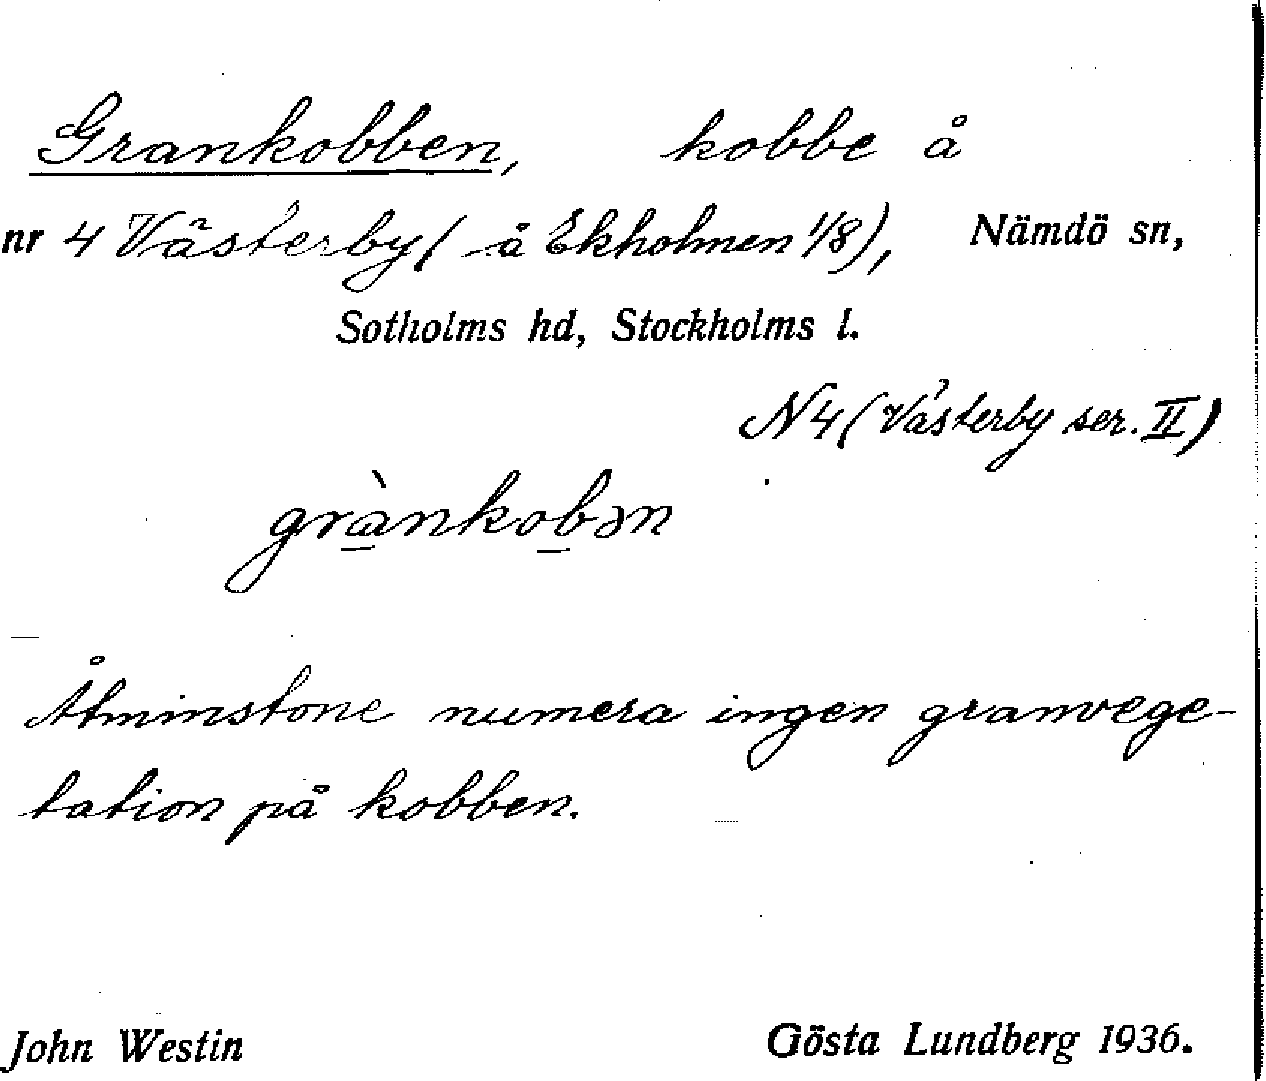 Grankobben, kobbe å
nr 4 Västerby ( å Ekholmen 1/8), Nämdö sn,
Sotholms hd, Stockholms l.
N4 (Västerby ser. II)
grà̱nkoḇən
Åtminstone numera ingen granvege-
tation på kobben.
John Westin Gösta Lundberg 1936.